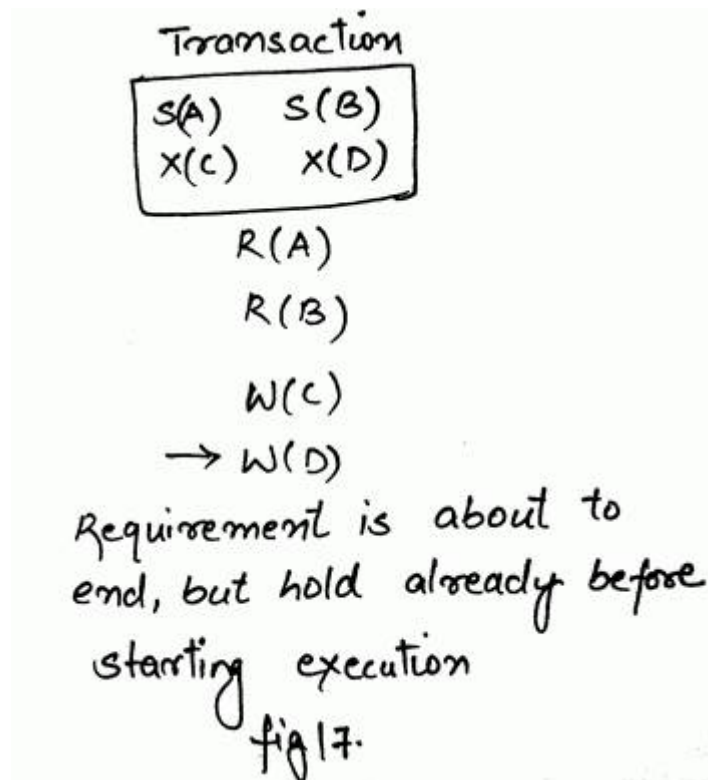 Transaction
S(A) S(B)
X(C) X(D)
R(A)
R(B)
W(C)
→ W(D)
Requirement is about to
end, but hold already before
starting execution
fig 17.